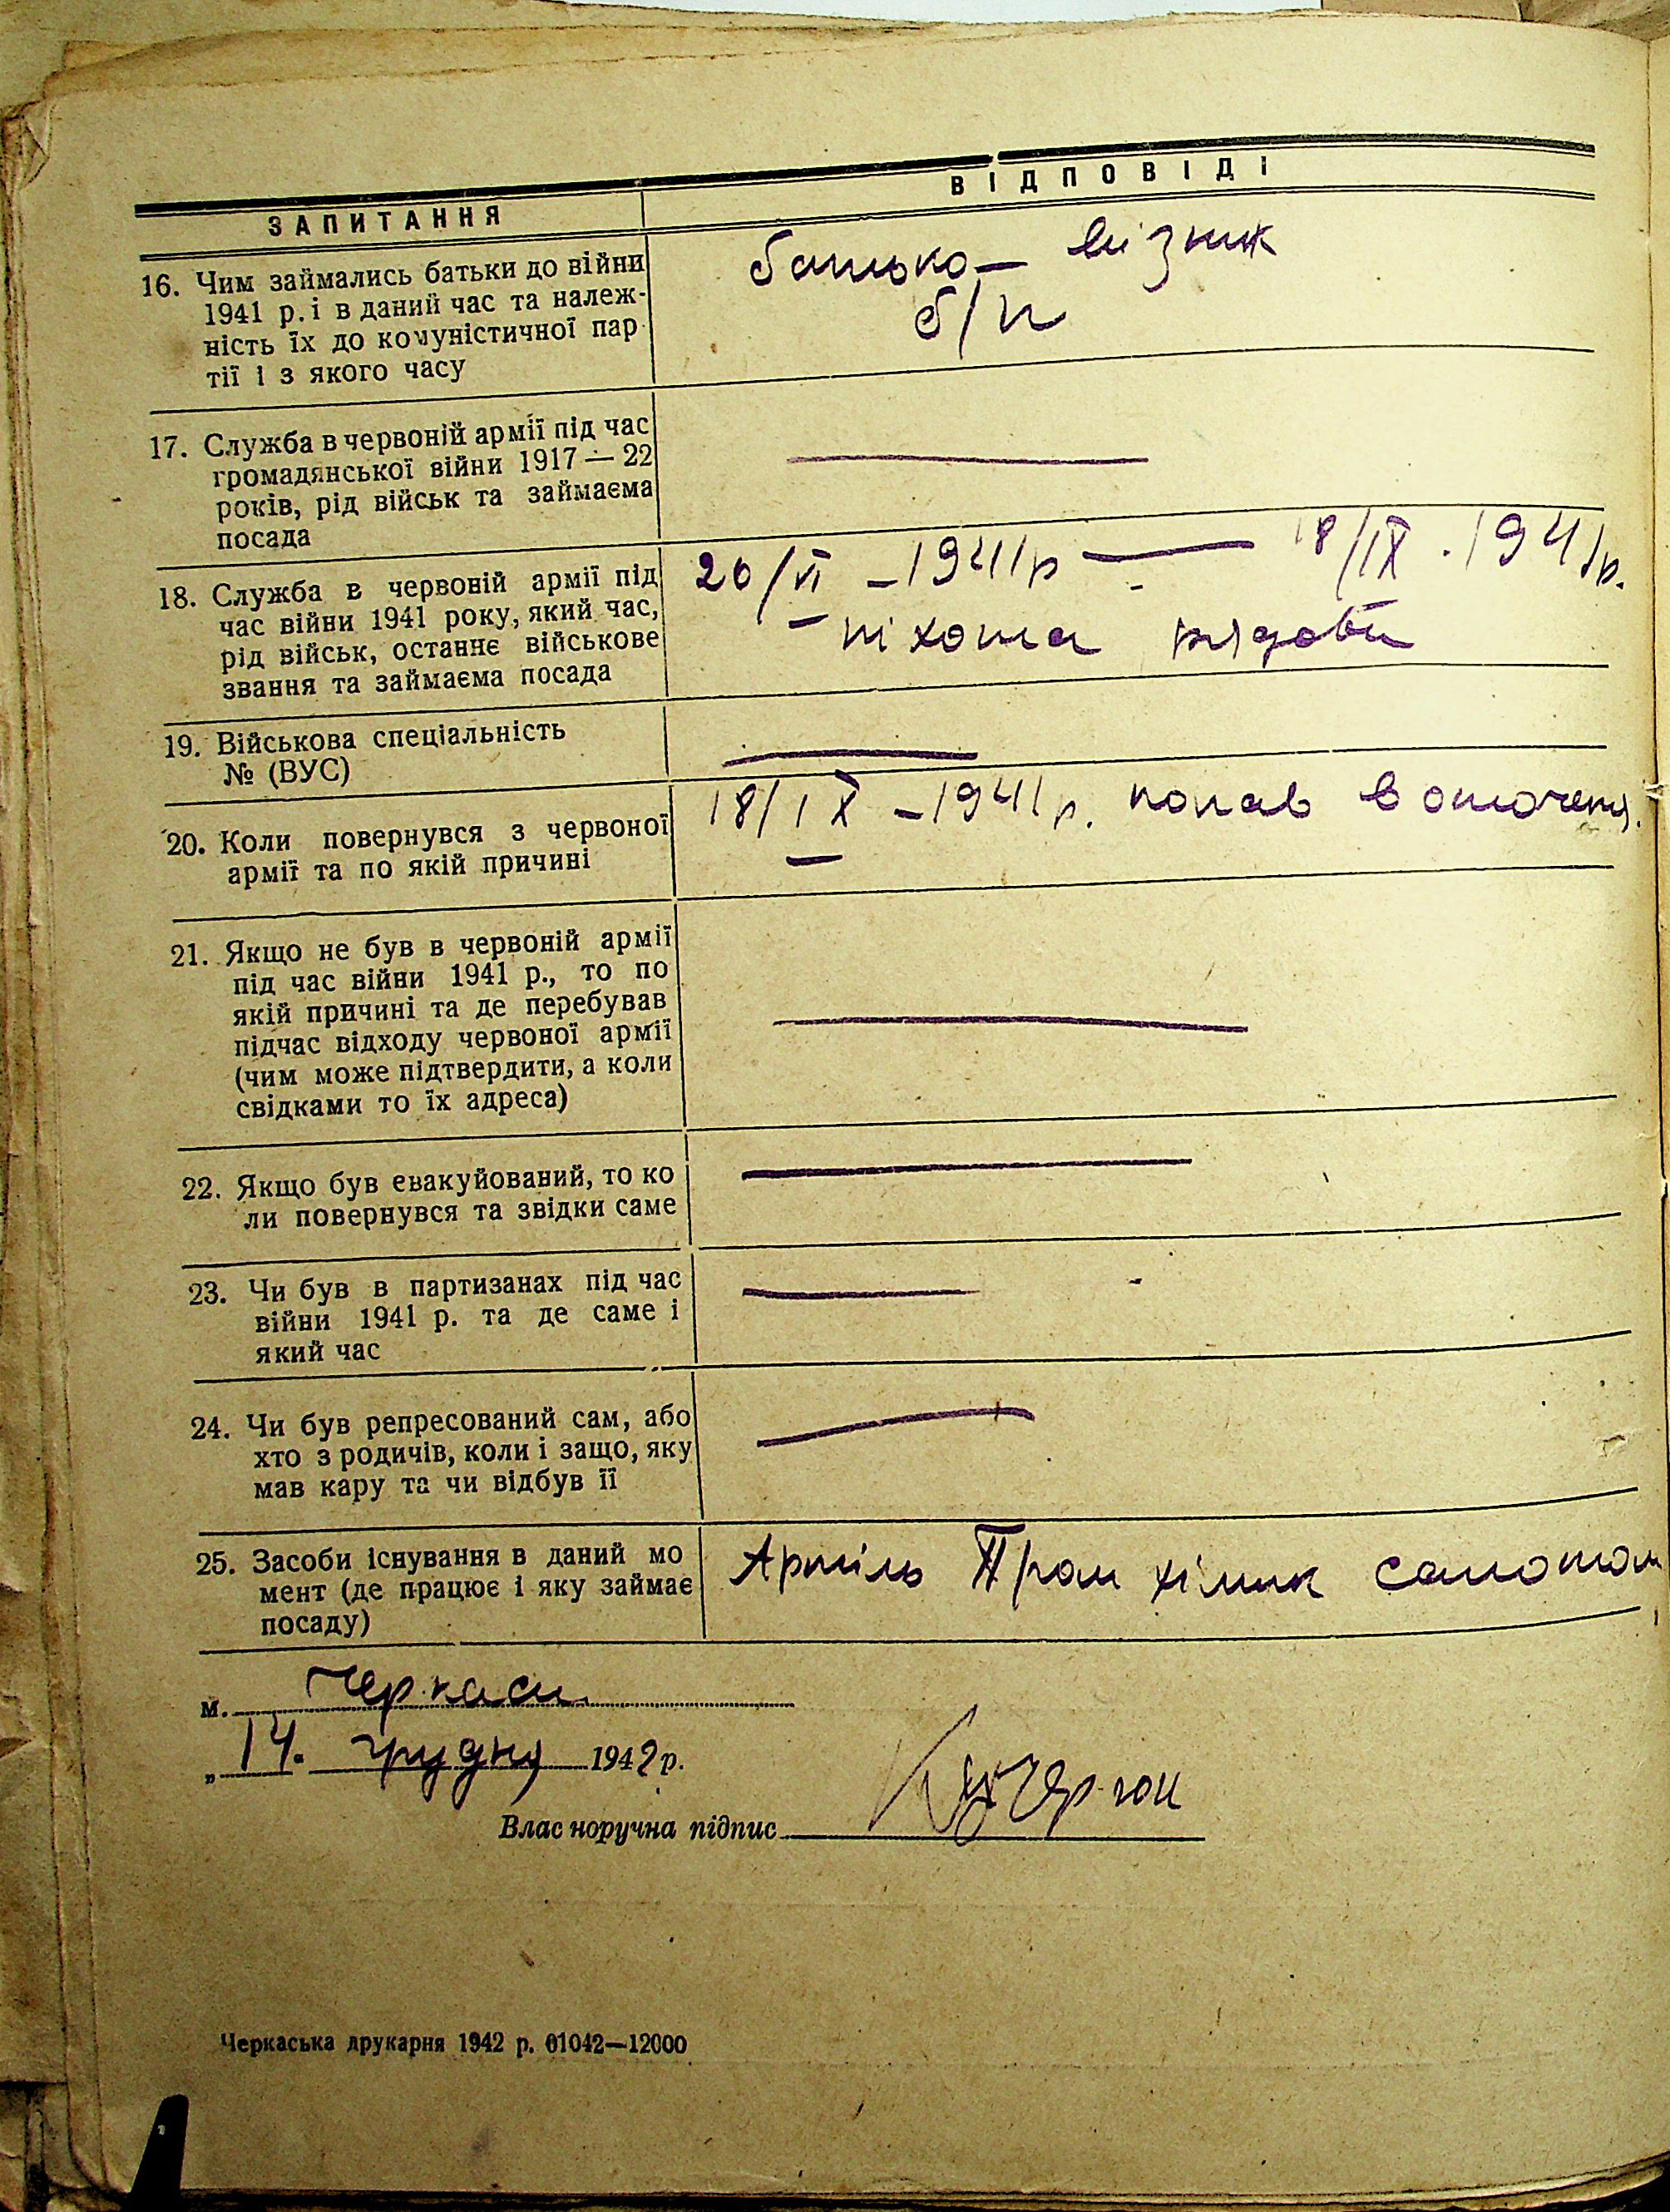 ЗАПИТАННЯ
ВІДПОВІДІ
16. Чим займались батьки до війни
1941 р. і в даний час та належ-
ність їх до комуністичної пар
тії і з якого часу
батько — візник
б/п
17. Служба в червоній армії під час
громадянської війни 1917 — 22
років, рід військ та займаєма
посада
—
18. Служба в червоній армії під
час війни 1941 року, який час,
рід військ, останнє військове
звання та займаєма посада
20/VI – 1941 р — 18/IX . 1941 р.
– піхота рядовий
19. Військова спеціальність
№ (ВУС)
—
20. Коли повернувся з червоної
армії та по якій причині
18/IX – 1941 р. попав в оточення.
21. Якщо не був в червоній армії
під час війни 1941 р., то по
якій причині та де перебував
підчас відходу червоної армії
(чим може підтвердити, а коли
свідками то їх адреса)
—
22. Якщо був евакуйований, то ко
ли повернувся та звідки саме
—
23. Чи був в партизанах під час
війни 1941 р. та де саме і
який час
—
24. Чи був репресований сам, або
хто з родичів, коли і защо, яку
мав кару та чи відбув її
—
25. Засоби існування в даний мо
мент (де працює і яку займає
посаду)
Артіль Пром хімик
м. Черкаси
„ 14. грудня 1942 р.
Власноручна підпис
Черкаська друкарня 1942 р. 01042—12000